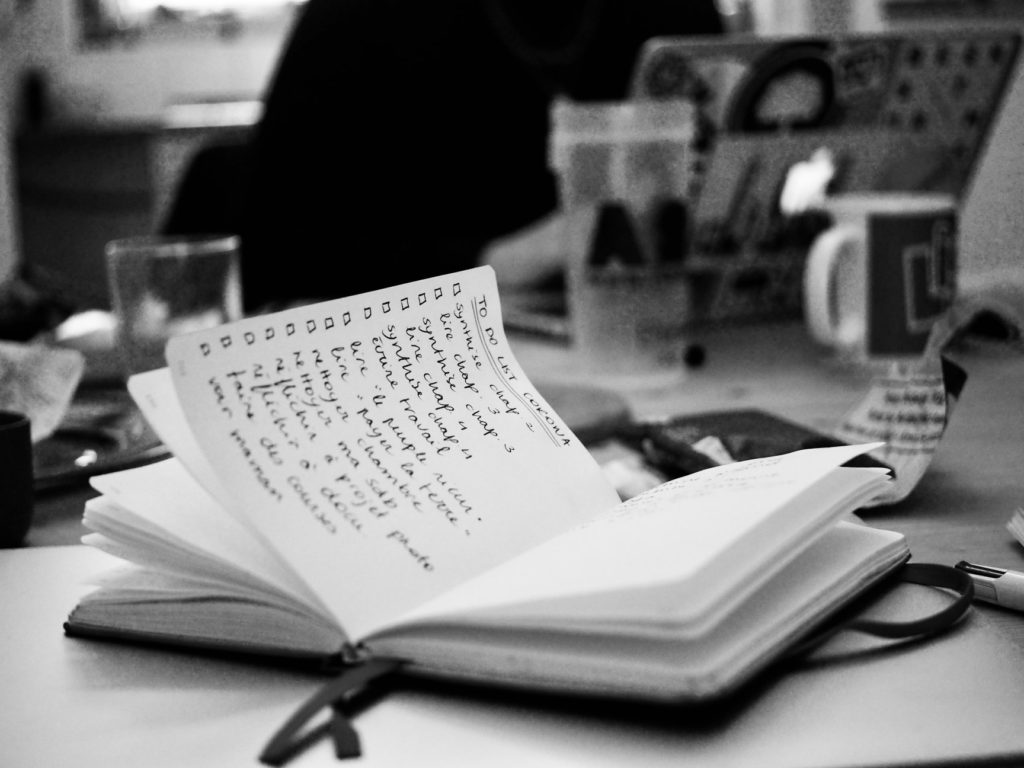 TO DO LIST CORONA
☐ synthise chap 2
☐ lire chap. 3
☐ synthise chap. 3
☐ lire chap 4
☐ synthise chap 4
☐ écrire travail
☐ lire "le peuple
☐ lire "payer la terre"
☐ nettoyer chambre
☐ nettoyer ma sdb
☐ réflechir à projet photo
☐ réflechir à
☐ faire des courses
☐ voir maman